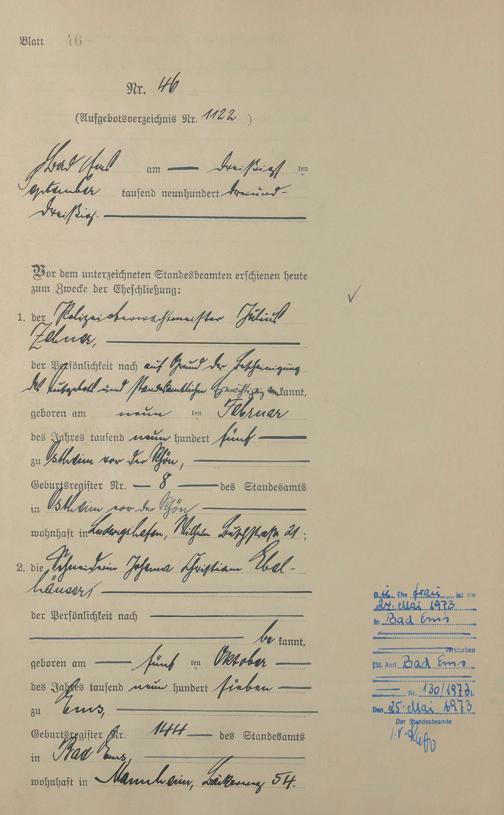 Blatt 46
Nr. 46
(Aufgebotsverzeichnis Nr. 1122 )
Bad Ems am dreißigsten
September tausend neunhundert dreiund-
dreißig.
Vor dem unterzeichneten Standesbeamten erschienen heute
zum Zwecke der Eheschließung:
1. der Polizeioberwachtmeister Julius
der Persönlichkeit nach auf Grund der Bescheinigung
des Aufgebots und standesamtlichen kannt,
geboren am neun ten Februar
des Jahres tausend neun hundert fünf
zu Ostheim vor der Rhön,
Geburtsregister Nr. 8 des Standesamts
in Ostheim vor der Rhön
wohnhaft in Ludwigshafen, Wilhelm 21;
2. die Schneiderin Johanna Christiane Ebel-
häuser,
der Persönlichkeit nach
be kannt,
geboren am fünf ten Oktober
des Jahres tausend neun hundert sieben
zu Ems,
Geburtsregister Nr. 144 des Standesamts
in Bad Ems,
wohnhaft in Mannheim, 54.
Die Ehefrau ist am
24. Mai 1973
in Bad Ems
verstorben
(St. Amt Bad Ems
Nr. 130/1973).
Den 25. Mai 1973
Der Standesbeamte